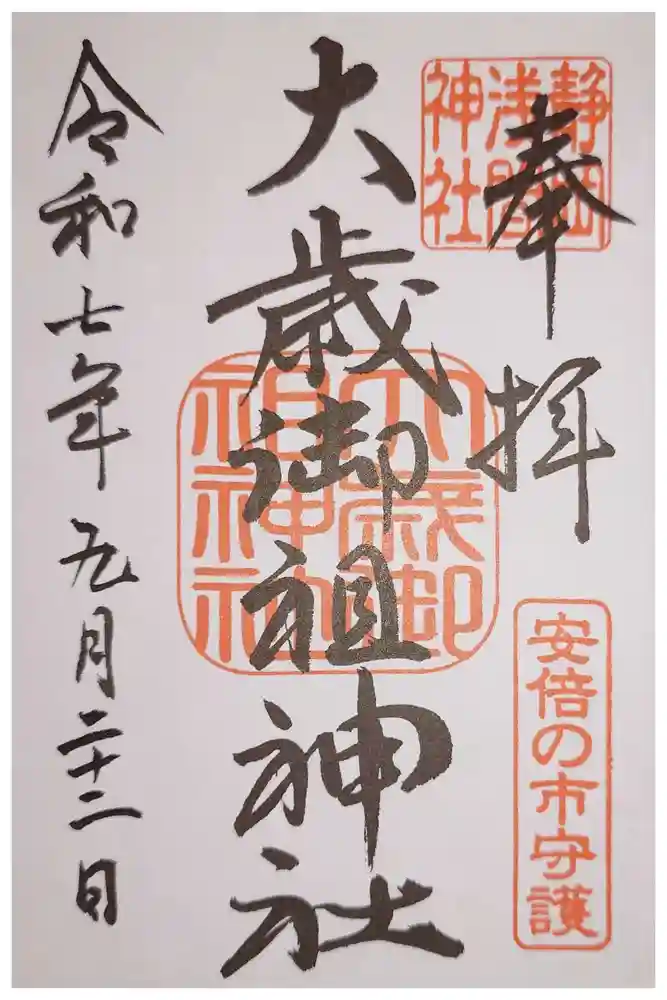 奉拝
静岡浅間神社
安倍の市守護
大歳御祖神社
大歳御祖神社
令和七年九月二十二日